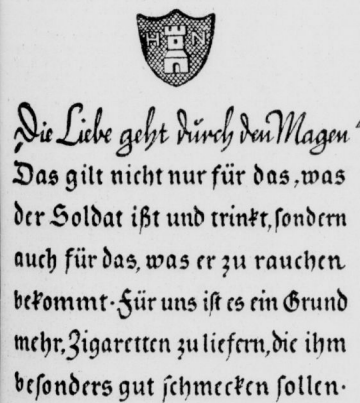 H N
„Die Liebe geht durch den Magen“
Das gilt nicht nur für das, was
der Soldat ißt und trinkt, sondern
auch für das, was er zu rauchen
bekommt· Für uns ist es ein Grund
mehr, Zigaretten zu liefern, die ihm
besonders gut schmecken sollen·